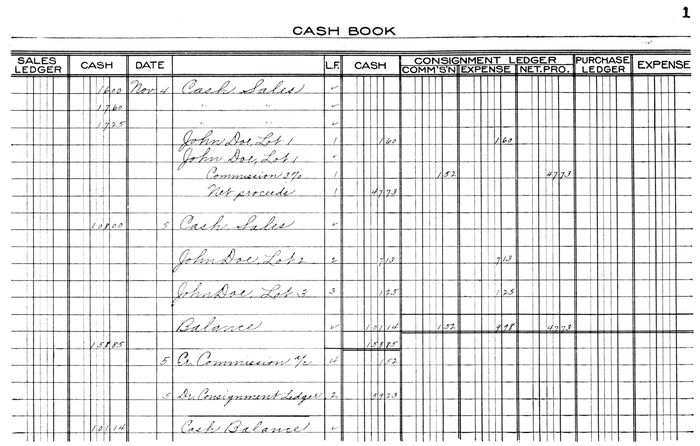 1
CASH BOOK
SALES LEDGER CASH DATE L.F. CASH CONSIGNMENT LEDGER PURCHASE LEDGER EXPENSE
COMM'S'N EXPENSE NET.PRO.
16 00 Nov 4 Cash Sales ✓
17 60 " " ✓
17 25 " " ✓
John Doe, Lot 1 1 1 60 1 60
John Doe, Lot 1 ✓
Commission 3% 1 1 52 47 73
Net proceeds 1 47 73
108 00 5 Cash Sales ✓
John Doe, Lot 2 2 7 13 7 13
John Doe, Lot 3 3 1 25 1 25
Balance ✓ 101 14 1 52 9 98 47 73
158 85 158 85
5 Cr. Commission a/c 4 1 52
5 Dr. Consignment Ledger 2 59 23
101 14 Cash Balance ✓